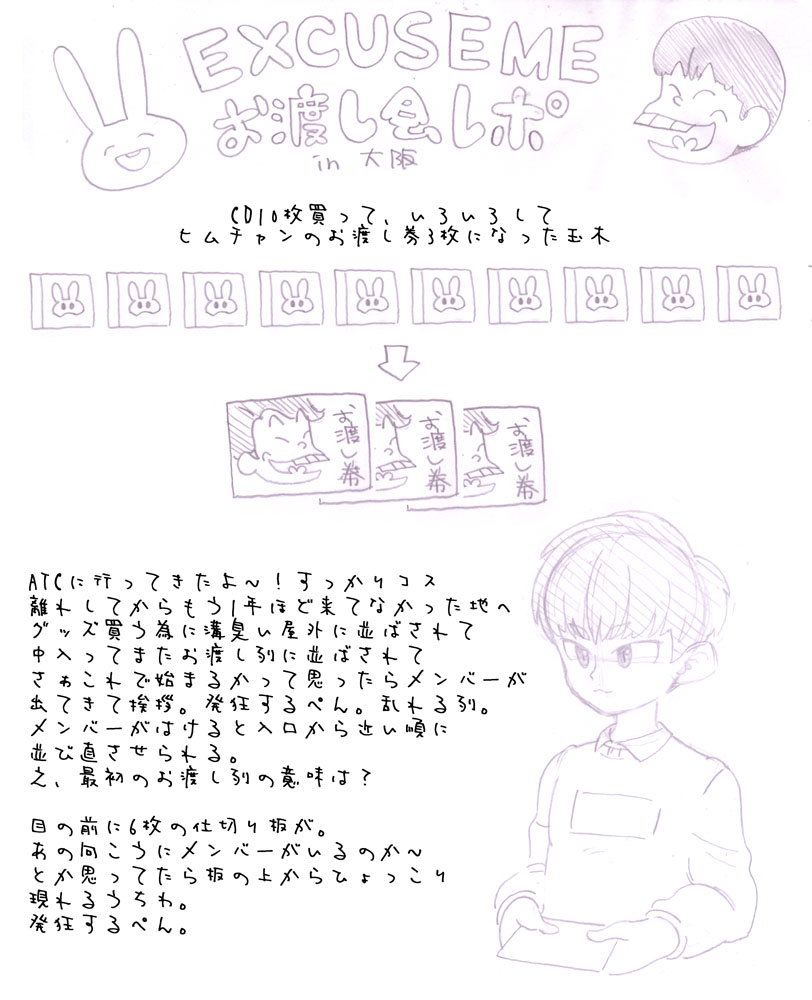 EXCUSE ME
お渡し会レポ
in 大阪
CD10枚買って、いろいろして
ヒムチャンのお渡し券3枚になった玉木
お渡し券
お渡し券
お渡し券
ATCに行ってきたよ～！すっかりコス
離れしてからもう1年ほど来てなかった地へ
グッズ買う為に溝臭い屋外に並ばされて
中入ってまたお渡し列に並ばされて
さぁこれで始まるかって思ったらメンバーが
出てきて挨拶。発狂するぺん。乱れる列。
メンバーがはけると入口から近い順に
並び直させられる。
え、最初のお渡し列の意味は？
目の前に6枚の仕切り板が。
あの向こうにメンバーがいるのか～
とか思ってたら板の上からひょっこり
現れるうちわ。
発狂するぺん。